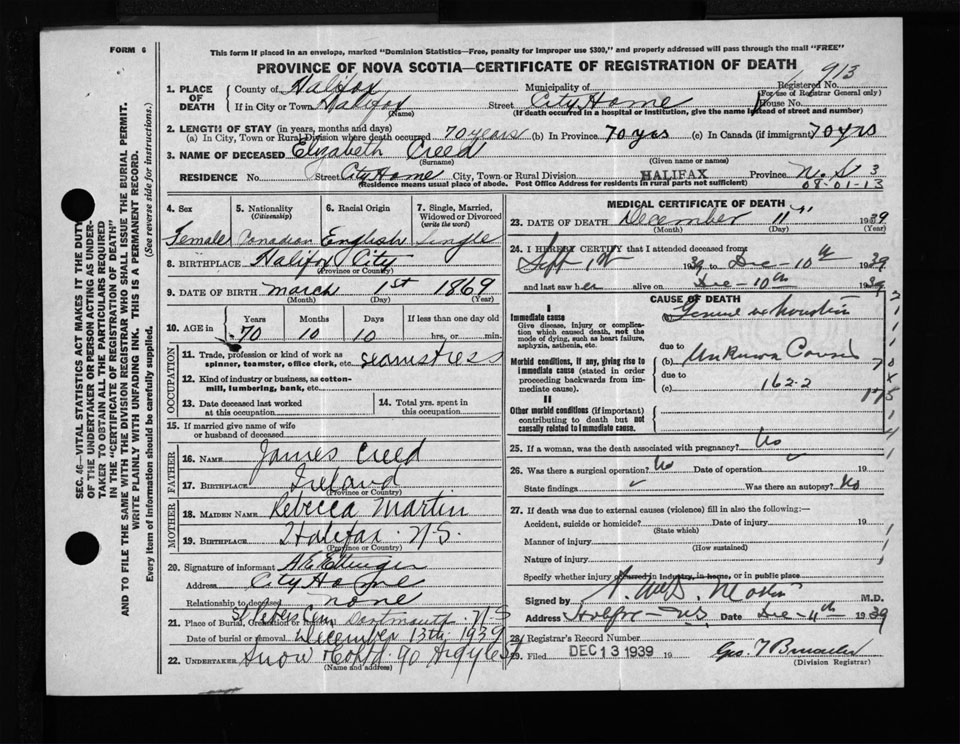 FORM 6
This form if placed in an envelope, marked "Dominion Statistics—Free, penalty for improper use $300," and properly addressed will pass through the mail "FREE"
PROVINCE OF NOVA SCOTIA—CERTIFICATE OF REGISTRATION OF DEATH
913
1. PLACE OF DEATH
County of Halifax
Municipality of
Registered No.
(For use of Registrar General only)
If in City or Town Halifax Street City Home House No.
(Name) (If death occurred in a hospital or institution, give the name instead of street and number)
2. LENGTH OF STAY (in years, months and days)
(a) In City, Town or Rural Division where death occurred 70 years (b) In Province 70 yrs (c) In Canada (if immigrant) 70 yrs
3. NAME OF DECEASED Elizabeth Creed
(Surname) (Given name or names)
RESIDENCE No. Street City Home City, Town or Rural Division HALIFAX Province N.S 3
(Residence means usual place of abode. Post Office Address for residents in rural parts not sufficient) 08-01-13
4. Sex
5. Nationality (Citizenship)
6. Racial Origin
7. Single, Married, Widowed or Divorced (write the word)
Female Canadian English Single
8. BIRTHPLACE Halifax City
(Province or Country)
9. DATE OF BIRTH March 1st 1869
(Month) (Day) (Year)
10. AGE in Years Months Days If less than one day old
70 10 10 hrs. or min.
OCCUPATION
11. Trade, profession or kind of work as spinner, teamster, office clerk, etc. seamstress
12. Kind of industry or business, as cotton-mill, lumbering, bank, etc.
13. Date deceased last worked at this occupation
14. Total yrs. spent in this occupation
15. If married give name of wife or husband of deceased
FATHER
16. NAME James Creed
17. BIRTHPLACE Ireland
(Province or Country)
MOTHER
18. MAIDEN NAME Rebecca Martin
19. BIRTHPLACE Halifax N.S.
(Province or Country)
20. Signature of informant
Address City Home
Relationship to deceased none
21. Place of Burial, Cremation or Dartmouth N.S
Date of burial or removal December 13th 1939
22. UNDERTAKER Snow 90 Argyle St
(Name and address)
MEDICAL CERTIFICATE OF DEATH
23. DATE OF DEATH December 11th 1939
(Month) (Day) (Year)
24. I HEREBY CERTIFY that I attended deceased from
Sept 1st 1939 to Dec-10th 1939
and last saw her alive on Dec-10th 1939
CAUSE OF DEATH
I
Immediate cause
Give disease, injury or complication which caused death, not the mode of dying, such as heart failure, asphyxia, asthenia, etc.
due to
Morbid conditions, if any, giving rise to immediate cause (stated in order proceeding backwards from immediate cause).
(b) Unknown Cause
due to
(c) 162-2
II
Other morbid conditions (if important) contributing to death but not causally related to immediate cause.
25. If a woman, was the death associated with pregnancy? No
26. Was there a surgical operation? No Date of operation 19
State findings Was there an autopsy? No
27. If death was due to external causes (violence) fill in also the following:—
Accident, suicide or homicide? Date of injury 19
(State which)
Manner of injury
(How sustained)
Nature of injury
Specify whether injury occurred in industry, in home, or in public place
Signed by M.D.
Address Halifax N.S. Date Dec-11th 1939
28. Registrar's Record Number
29. Filed DEC 13 1939 19
(Division Registrar)
SEC. 46—VITAL STATISTICS ACT MAKES IT THE DUTY OF THE UNDERTAKER OR PERSON ACTING AS UNDERTAKER TO OBTAIN ALL THE PARTICULARS REQUIRED IN THE "CERTIFICATE OF REGISTRATION OF DEATH" AND TO FILE THE SAME WITH THE DIVISION REGISTRAR WHO SHALL ISSUE THE BURIAL PERMIT.
WRITE PLAINLY WITH UNFADING INK. THIS IS A PERMANENT RECORD.
Every item of information should be carefully supplied. (See reverse side for instructions.)